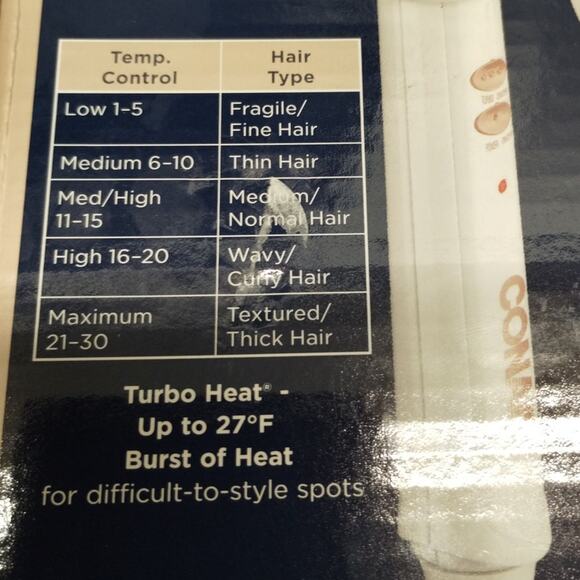 Temp. Hair
Control Type
Low 1-5 Fragile/
Fine Hair
Medium 6-10 Thin Hair
Med/High Medium/
11-15 Normal Hair
High 16-20 Wavy/
Curly Hair
Maximum Textured/
21-30 Thick Hair
Turbo Heat® -
Up to 27°F
Burst of Heat
for difficult-to-style spots